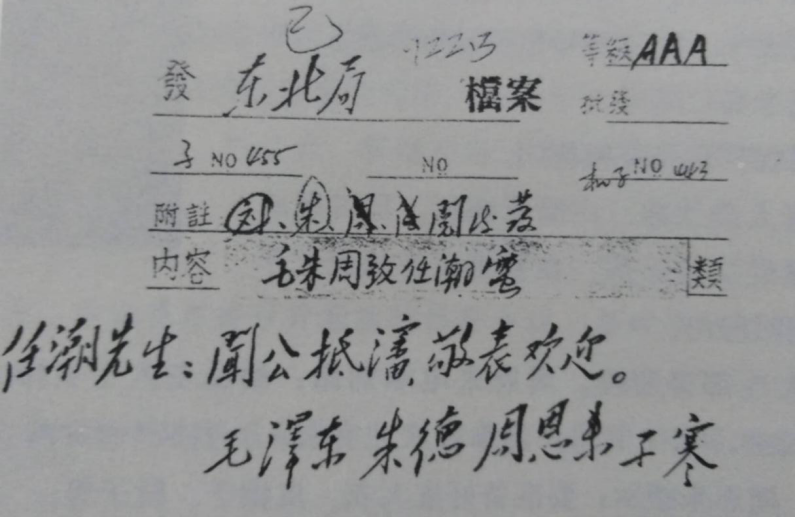 已
發 东北局 檔案 等級 AAA
批發
子 NO 455 NO 机子 NO 443
附註 刘、朱、周、阅后发
内容 毛朱周致任潮電 類
任潮先生：聞公抵瀋，敬表欢迎。
毛澤东 朱德 周恩来 子寒